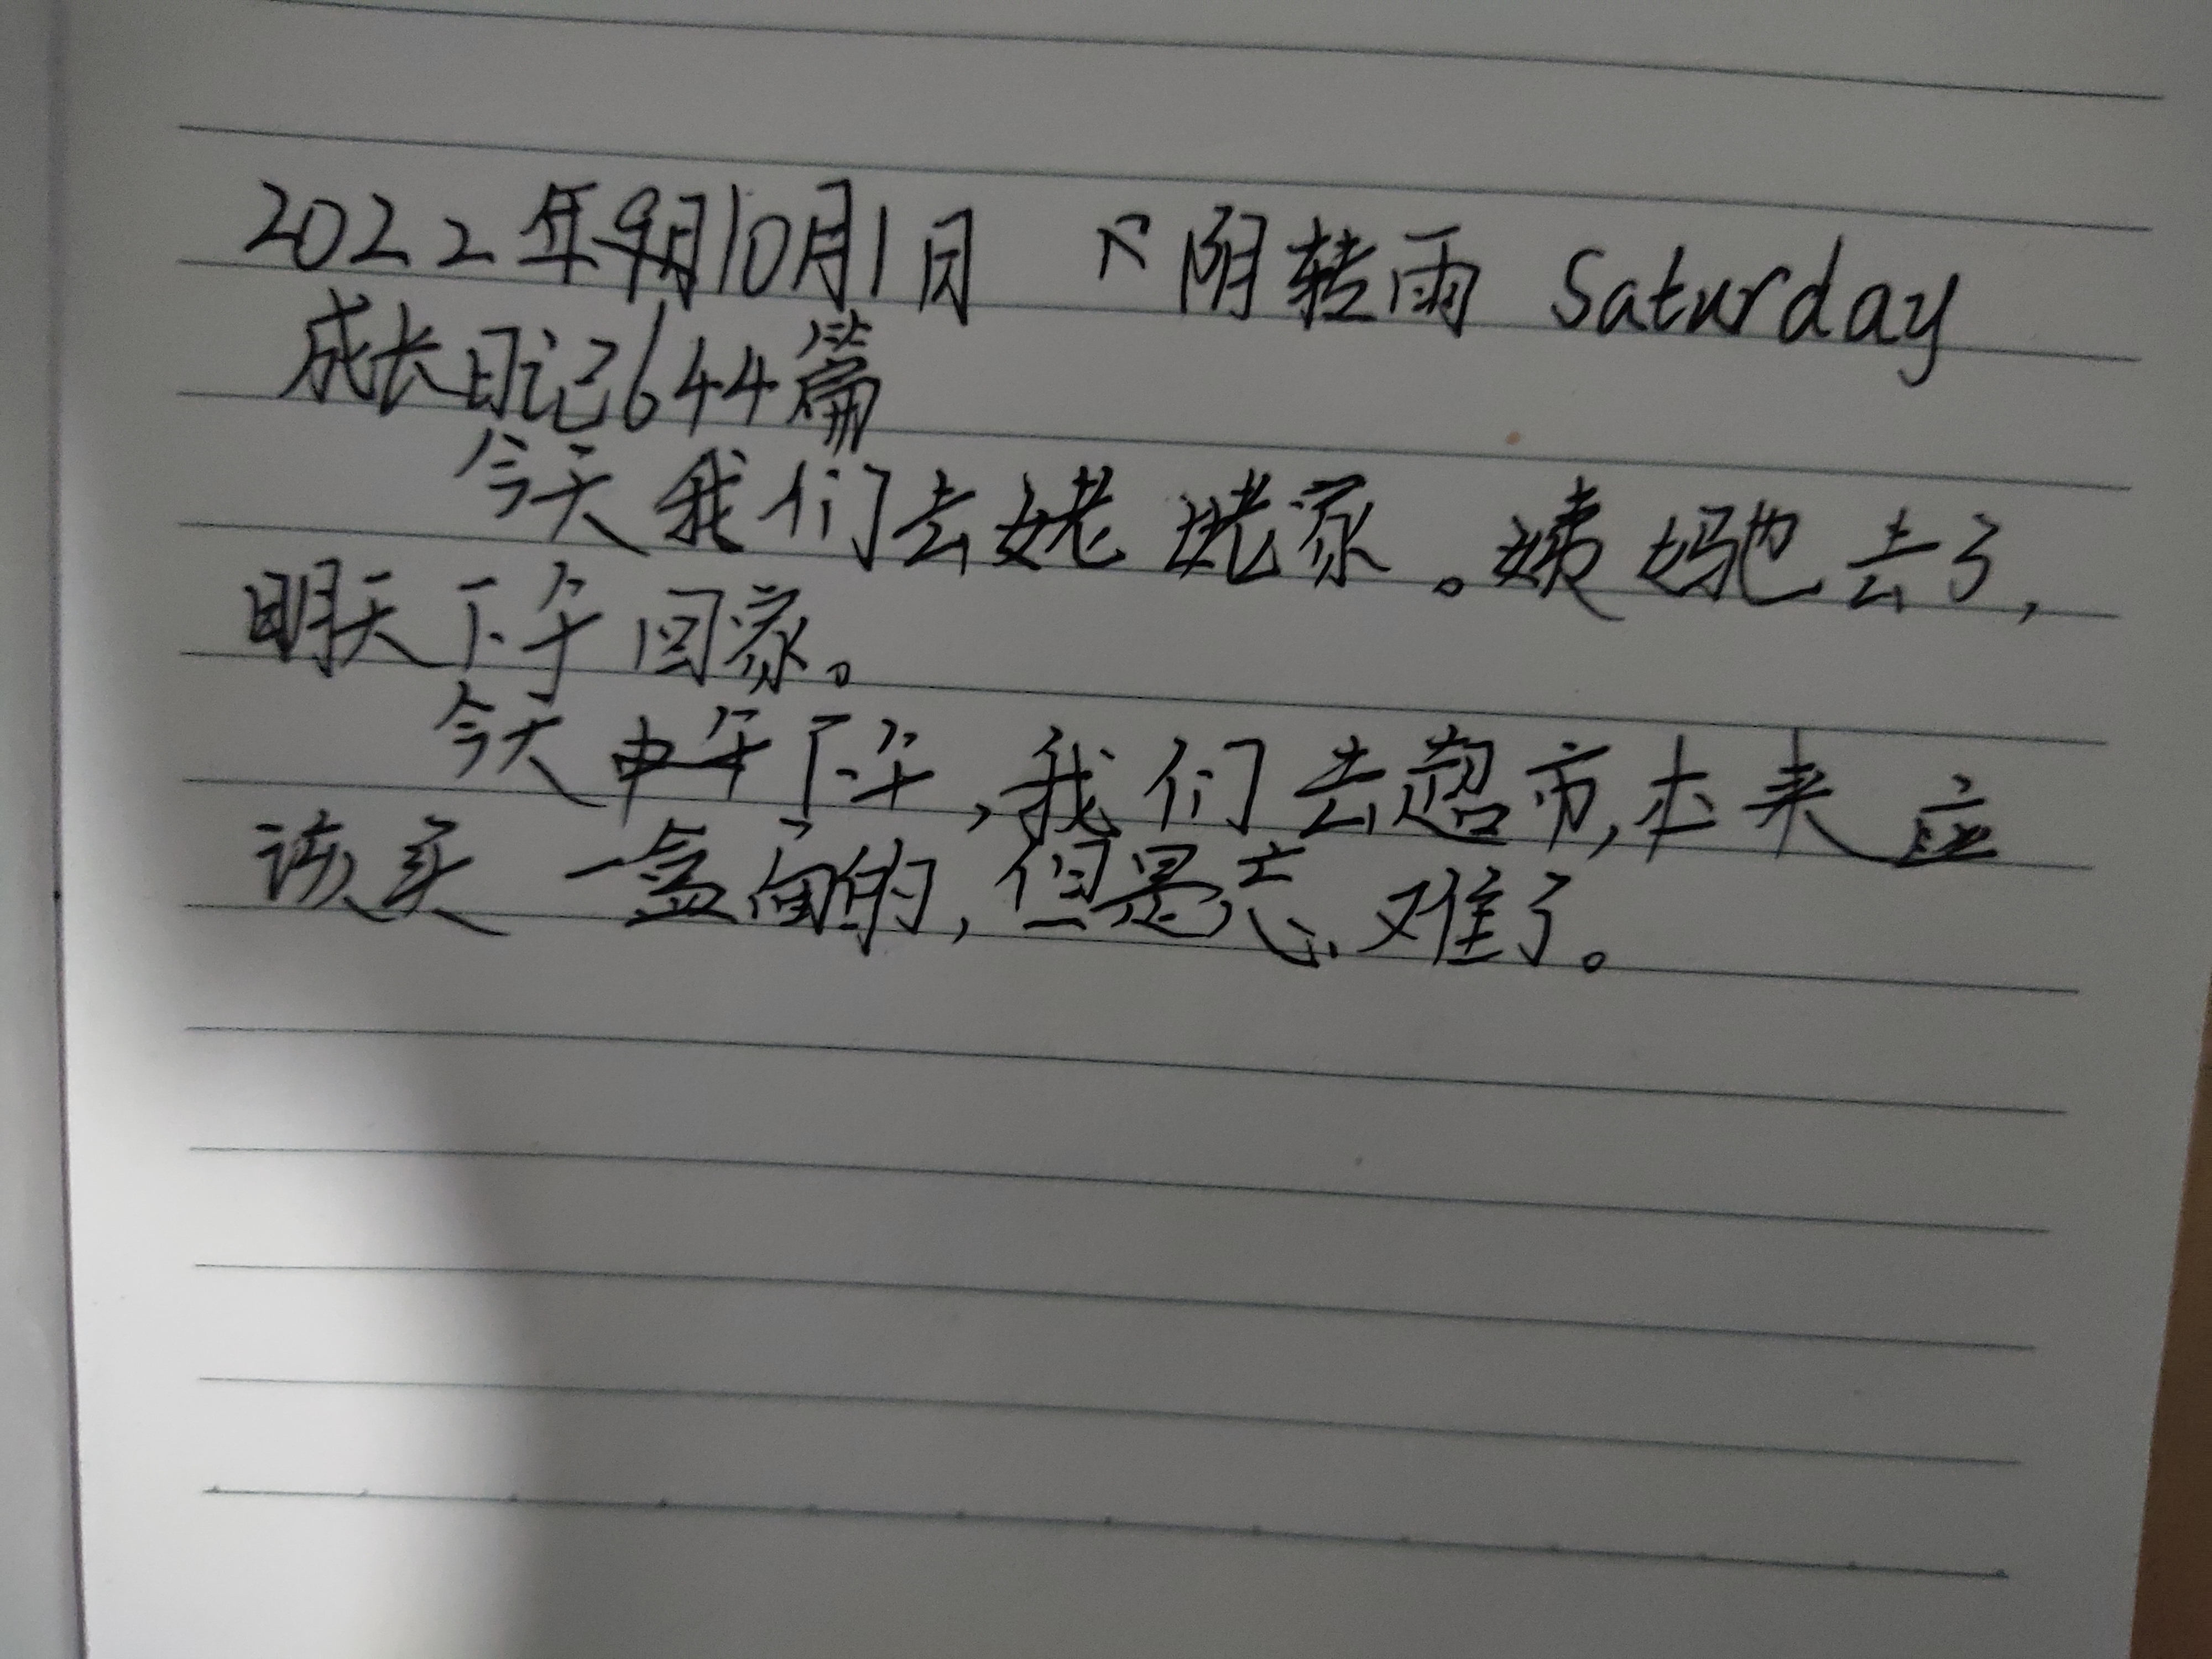 2022年10月1日 阴转雨 Saturday
成长日记644篇
今天我们去姥姥家。姨妈也去了,
明天下午回家。
今天下午,我们去超市,本来应
该买一盒的,但是忘了。